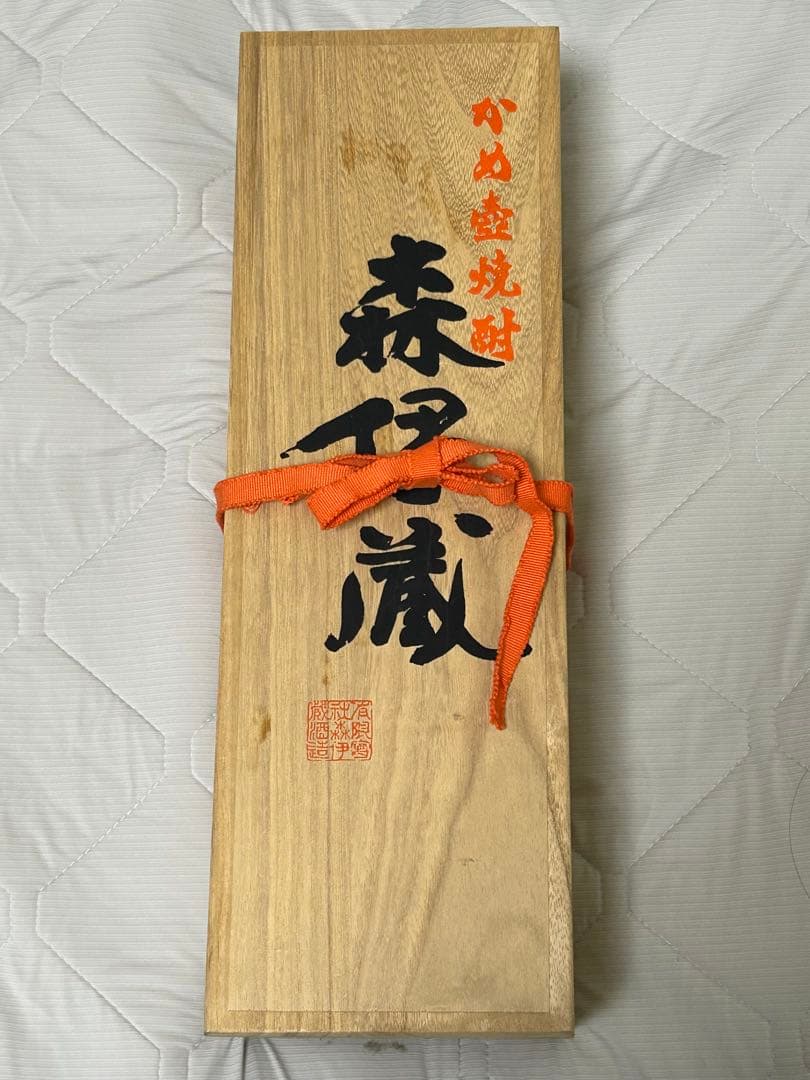 かめ壺焼酎
森伊蔵
有限會
社森伊
蔵酒造